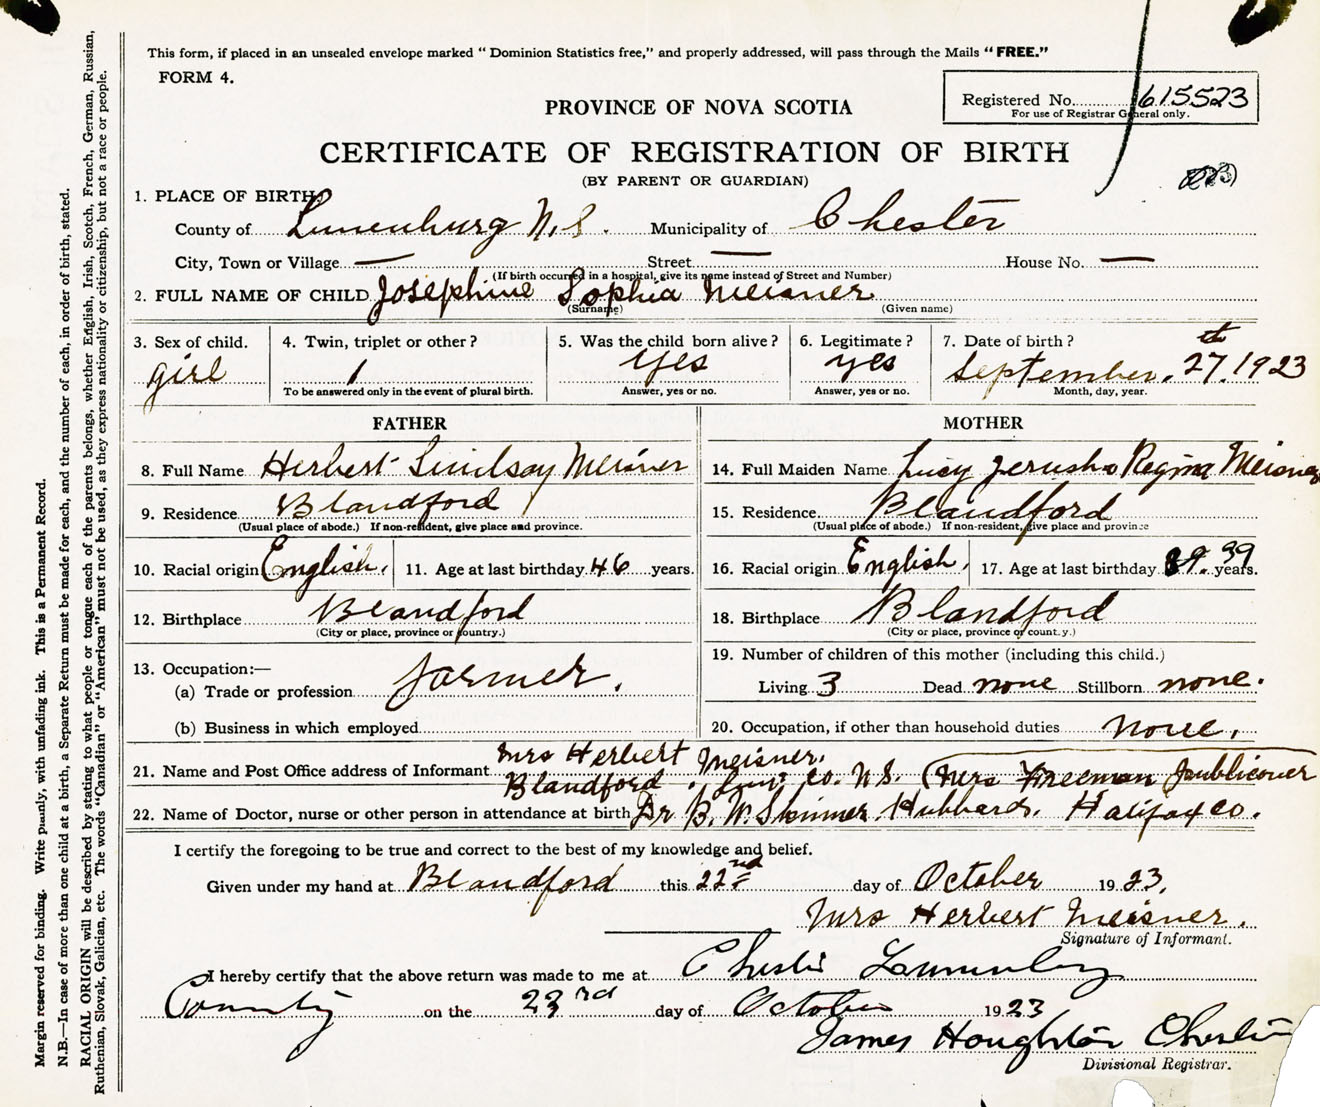 This form, if placed in an unsealed envelope marked "Dominion Statistics free," and properly addressed, will pass through the Mails "FREE."
FORM 4.
Registered No. 615523
For use of Registrar General only.
PROVINCE OF NOVA SCOTIA
CERTIFICATE OF REGISTRATION OF BIRTH
(BY PARENT OR GUARDIAN)
1. PLACE OF BIRTH:
County of Lunenburg N.S. Municipality of Chester
City, Town or Village — Street — House No. —
(If birth occurred in a hospital, give its name instead of Street and Number)
2. FULL NAME OF CHILD Josephine Sophia Meisner
(Surname) (Given name)
3. Sex of child. 4. Twin, triplet or other? 5. Was the child born alive? 6. Legitimate? 7. Date of birth?
girl 1 yes yes September. 27th. 1923
To be answered only in the event of plural birth. Answer, yes or no. Answer, yes or no. Month, day, year.
FATHER MOTHER
8. Full Name Herbert Lindsay Meisner 14. Full Maiden Name Lucy Jerusha Regina Meisner
9. Residence Blandford 15. Residence Blandford
(Usual place of abode.) If non-resident, give place and province. (Usual place of abode.) If non-resident, give place and province
10. Racial origin English. 11. Age at last birthday 46 years. 16. Racial origin English. 17. Age at last birthday 39. 39 years.
12. Birthplace Blandford 18. Birthplace Blandford
(City or place, province or country.) (City or place, province or county.)
13. Occupation:— 19. Number of children of this mother (including this child.)
(a) Trade or profession farmer. Living 3 Dead none Stillborn none.
(b) Business in which employed 20. Occupation, if other than household duties none.
21. Name and Post Office address of Informant Mrs Herbert Meisner.
Blandford. Lun. Co. N.S. (Mrs Freeman Publicover
22. Name of Doctor, nurse or other person in attendance at birth Dr B. W. Skinner. Hubbards. Halifax Co.
I certify the foregoing to be true and correct to the best of my knowledge and belief.
Given under my hand at Blandford this 22nd day of October 1923.
Mrs Herbert Meisner.
Signature of Informant.
I hereby certify that the above return was made to me at Chester Lunenburg
County on the 23rd day of October 1923
James Houghton Chester
Divisional Registrar.
Margin reserved for binding. Write plainly, with unfading ink. This is a Permanent Record.
N.B.—In case of more than one child at a birth, a Separate Return must be made for each, and the number of each, in order of birth, stated.
RACIAL ORIGIN will be described by stating to what people or tongue each of the parents belongs, whether English, Irish, Scotch, French, German, Russian,
Ruthenian, Slovak, Galician, etc. The words "Canadian" or "American" must not be used, as they express nationality or citizenship, but not a race or people.